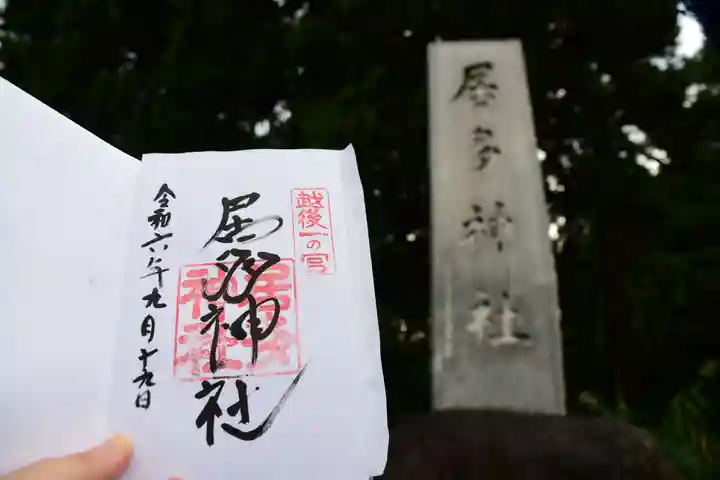 越後一の宮
居多神社
居多神社
令和六年九月十九日
居多神社